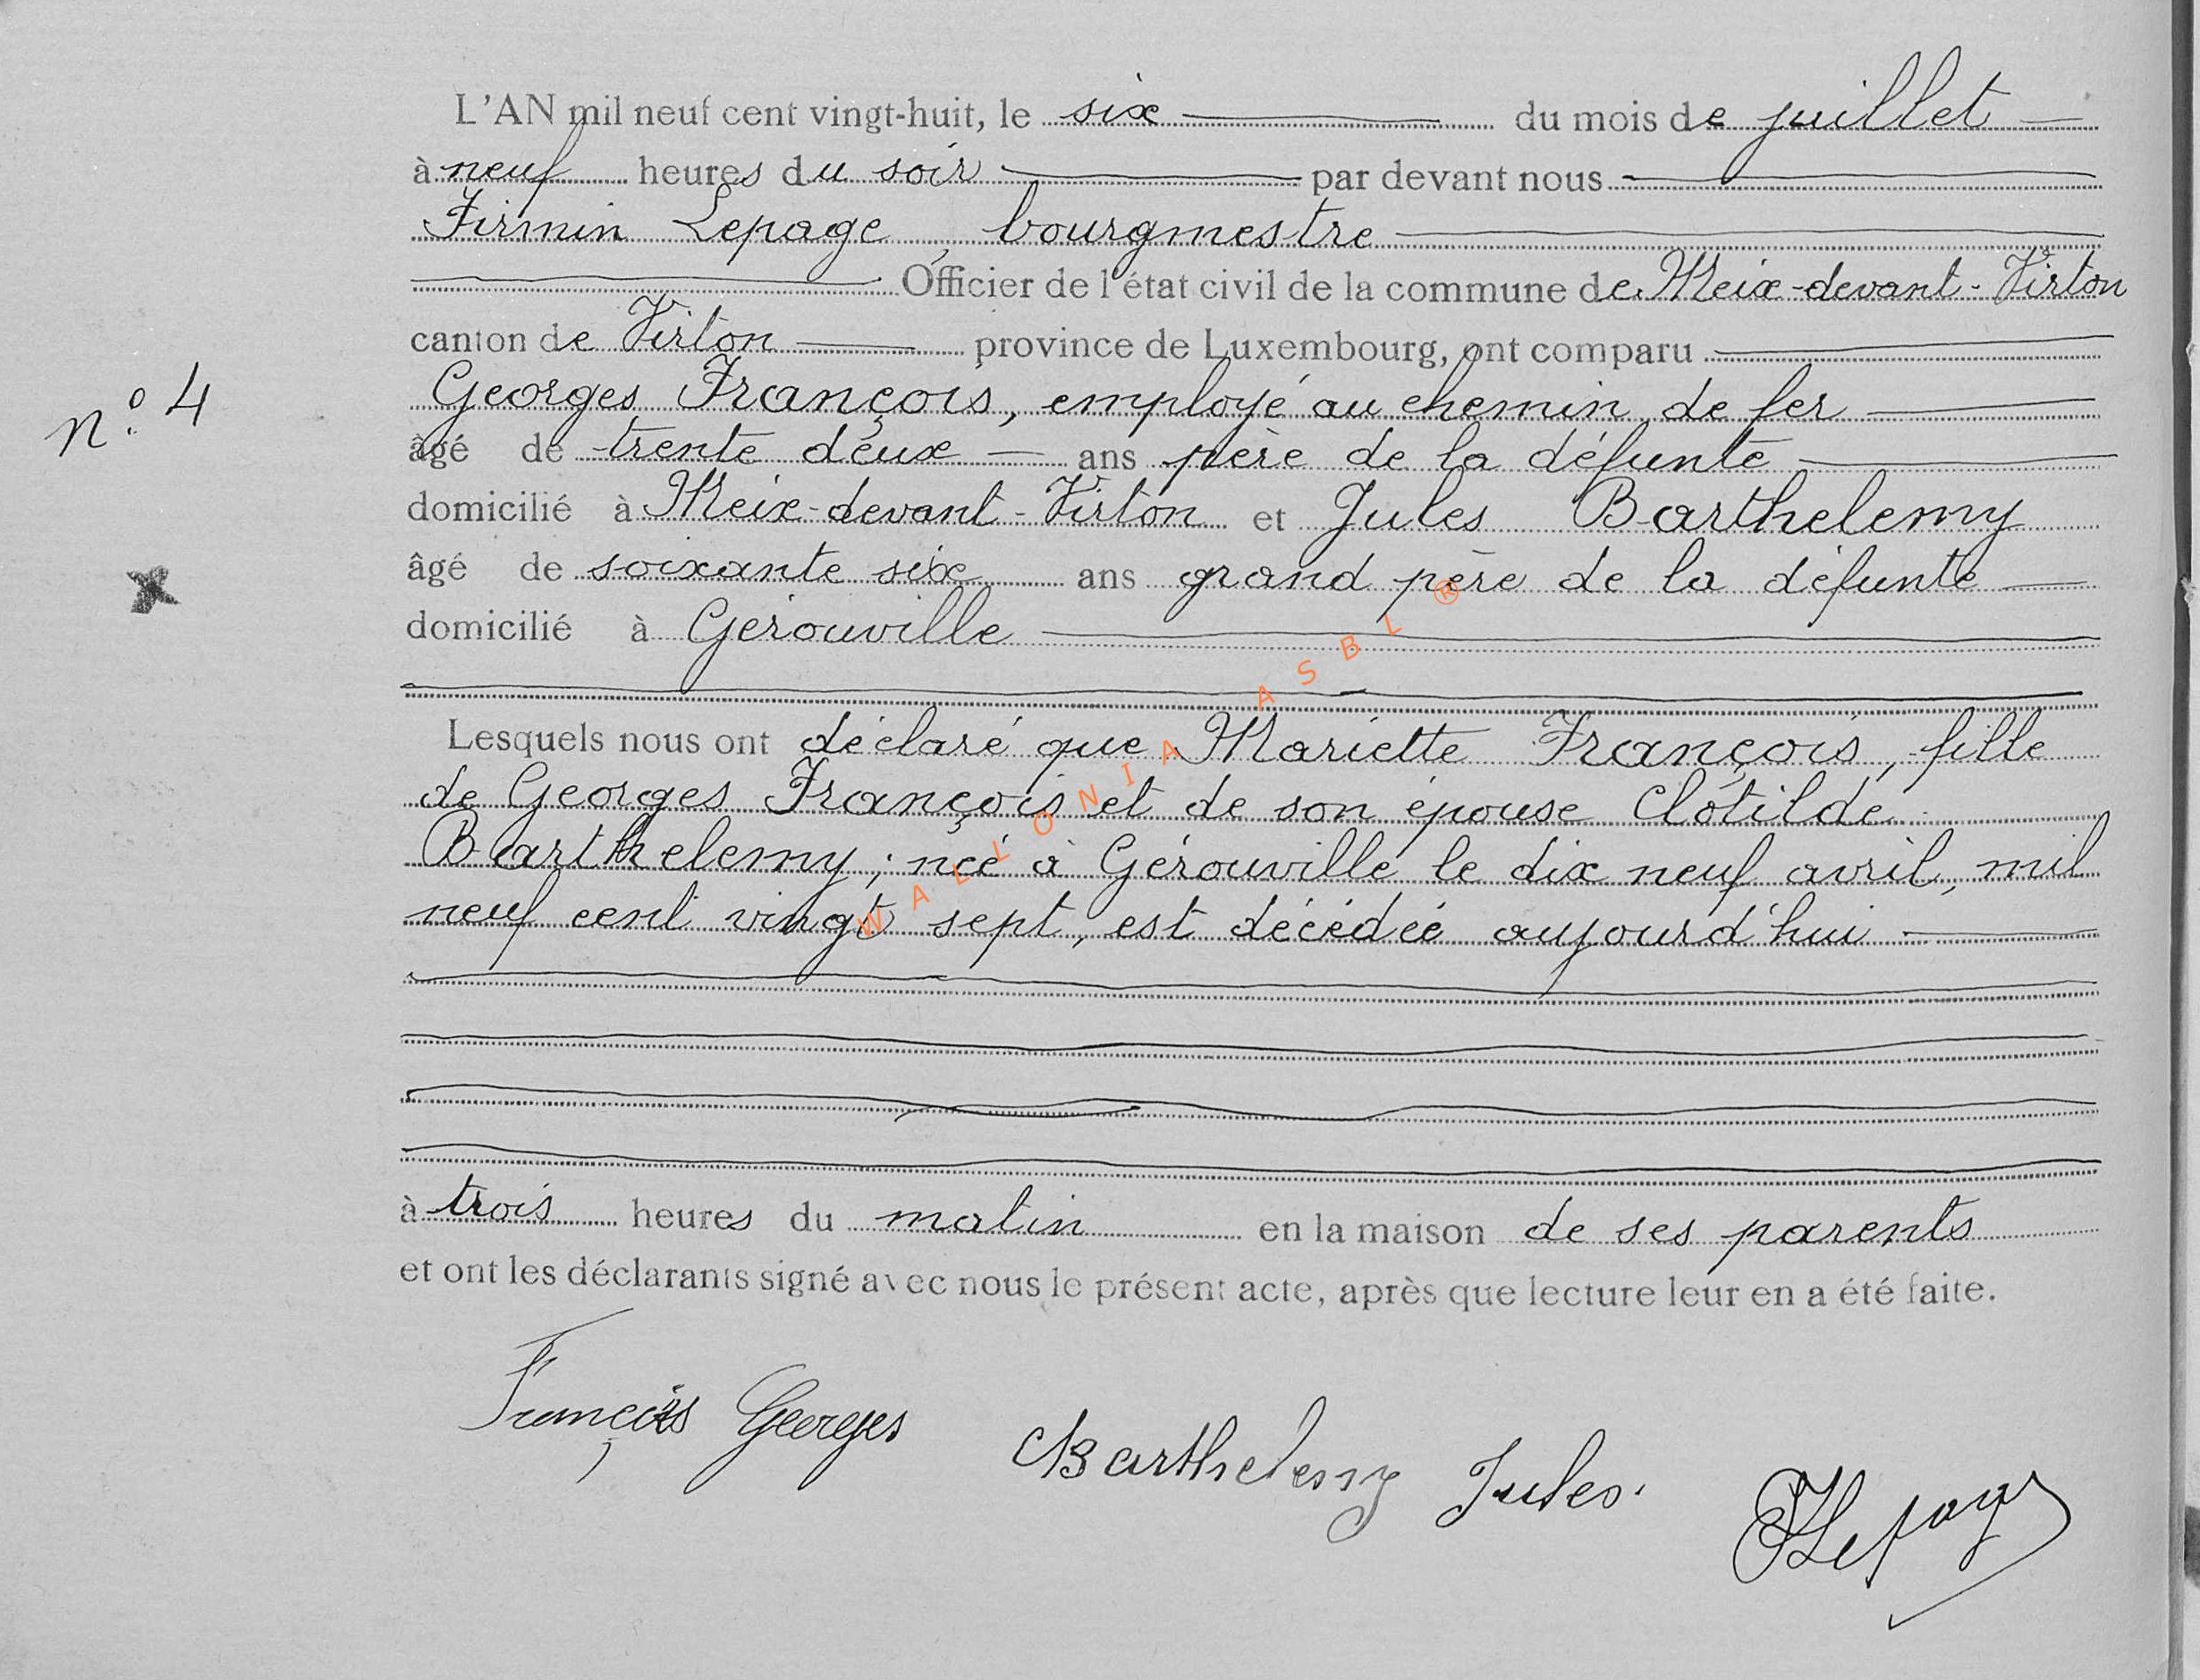 L'AN mil neuf cent vingt-huit, le six du mois de juillet
à neuf heures du soir par devant nous
Firmin Lepage, bourgmestre
Officier de l'état civil de la commune de Meix-devant-Virton
canton de Virton province de Luxembourg, ont comparu
n° 4
Georges François, employé au chemin de fer
âgé de trente deux ans père de la défunte
domicilié à Meix-devant-Virton et Jules Barthelemy
âgé de soixante six ans grand père de la défunte
domicilié à Gérouville
Lesquels nous ont déclaré que Mariette François, fille
de Georges François et de son épouse Clotilde
Barthelemy, née à Gérouville le dix neuf avril, mil
neuf cent vingt sept, est décédée aujourd'hui
à trois heures du matin en la maison de ses parents
et ont les déclarants signé avec nous le présent acte, après que lecture leur en a été faite.
François Georges
Barthelemy Jules.
FLepage
WALLONIA ASBL ®